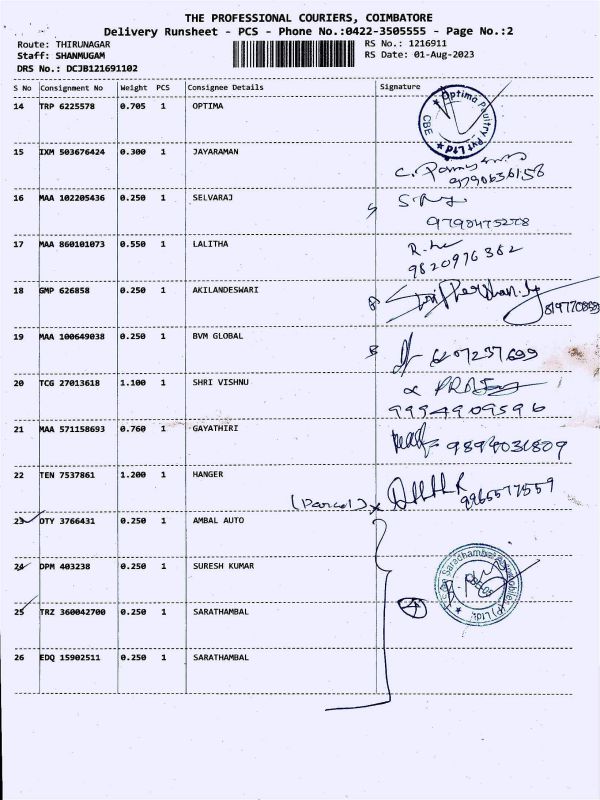 THE PROFESSIONAL COURIERS, COIMBATORE
Delivery Runsheet - PCS - Phone No.:0422-3505555 - Page No.:2
Route: THIRUNAGAR
RS No.: 1216911
Staff: SHANMUGAM
RS Date: 01-Aug-2023
DRS No.: DCJB121691102
S No Consignment No Weight PCS Consignee Details Signature
14 TRP 6225578 0.705 1 OPTIMA
Optima Poultry Pvt Ltd CBE
15 IXM 503676424 0.300 1 JAYARAMAN
9790636158
16 MAA 102205436 0.250 1 SELVARAJ
9790475278
17 MAA 860101073 0.550 1 LALITHA
9820976362
18 GMP 626858 0.250 1 AKILANDESWARI
19 MAA 100649038 0.250 1 BVM GLOBAL
6407237699
20 TCG 27013618 1.100 1 SHRI VISHNU
9994909596
21 MAA 571158693 0.760 1 GAYATHIRI
9894031809
22 TEN 7537861 1.200 1 HANGER
(Parcel)
9965577559
23 DTY 3766431 0.250 1 AMBAL AUTO
24 DPM 403238 0.250 1 SURESH KUMAR
25 TRZ 360042700 0.250 1 SARATHAMBAL
4
26 EDQ 15902511 0.250 1 SARATHAMBAL